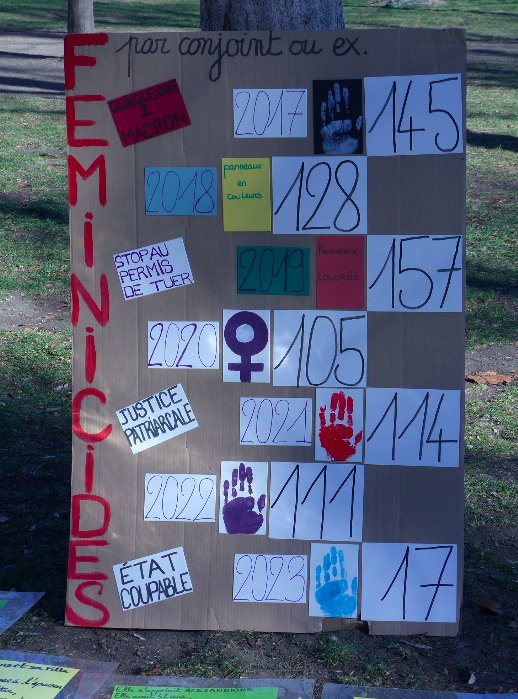 FEMiNiCiDES
par conjoint ou ex.
QUINQUENNAT
2
MACRON
2017
145
2018
panneaux
en
couleurs
128
STOP AU
PERMIS
DE TUER
2019
Panneaux
coloriés
157
2020
105
JUSTICE
PATRIARCALE
2021
114
2022
111
ÉTAT
COUPABLE
2023
17